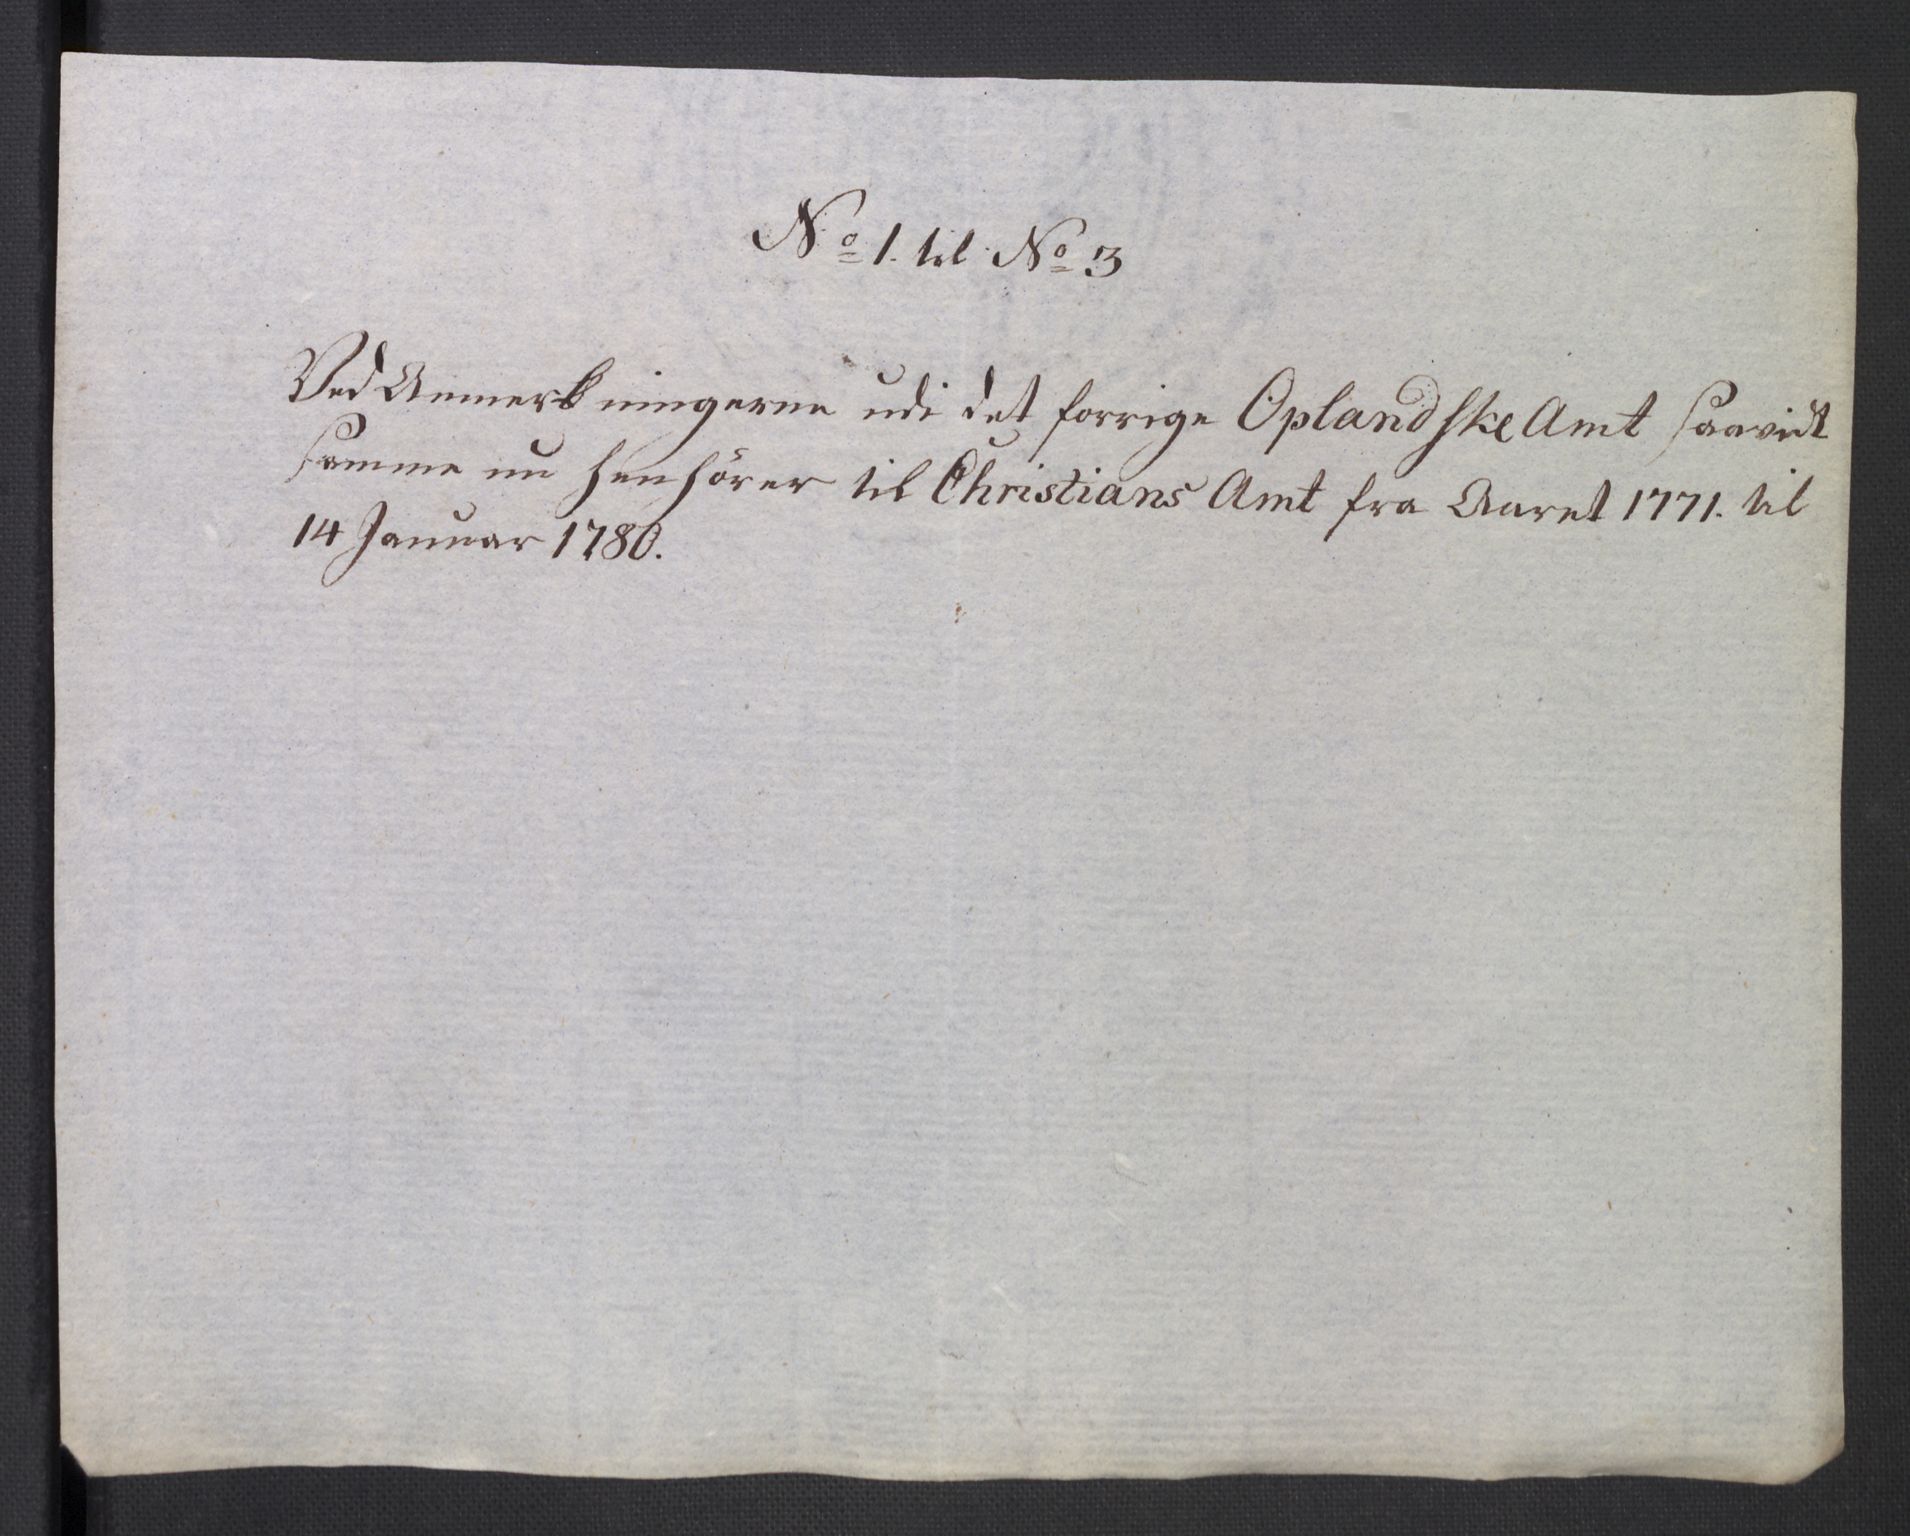 No 1. til No 3
Ved Anmerkningerne udi det forrige Oplandske Amt saavidt
samme nu henhörer til Christians Amt fra Aaret 1771. til
14 Januar 1780.